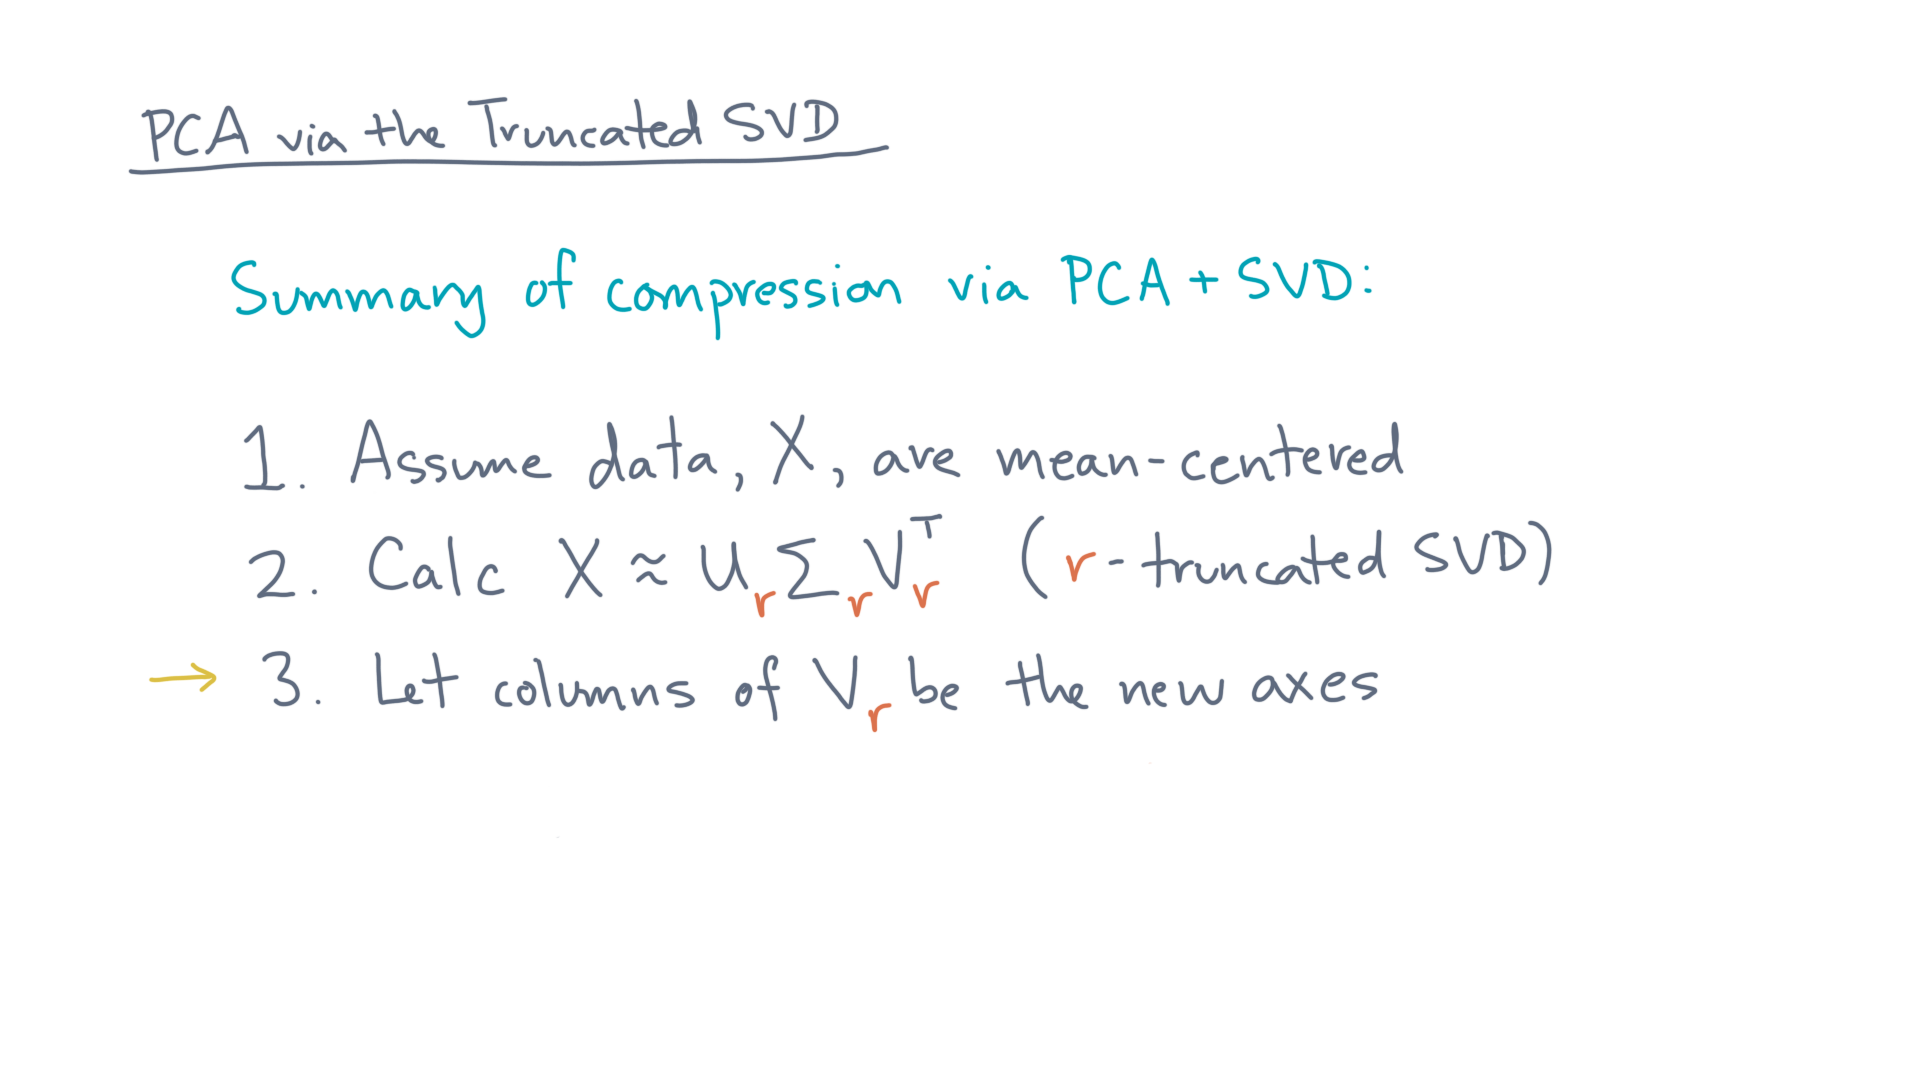 PCA via the Truncated SVD
Summary of compression via PCA + SVD:
1. Assume data, X, are mean-centered
2. Calc X ≈ UᵣΣᵣVᵣᵀ (r-truncated SVD)
→ 3. Let columns of Vᵣ be the new axes